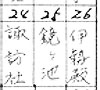 24 25 26
諏訪社
鏡ヶ池
伊勢殿